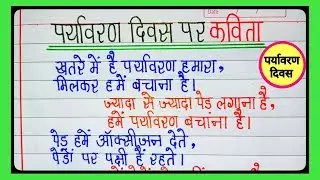 पर्यावरण दिवस पर कविता
पर्यावरण
दिवस
खतरे में है पर्यावरण हमारा,
मिलकर हमें बचाना है।
ज्यादा से ज्यादा पेड़ लगाना है,
हमें पर्यावरण बचांना है।
पेड़ हमें ऑक्सीजन देते,
पेड़ों पर पक्षी हैं रहते।